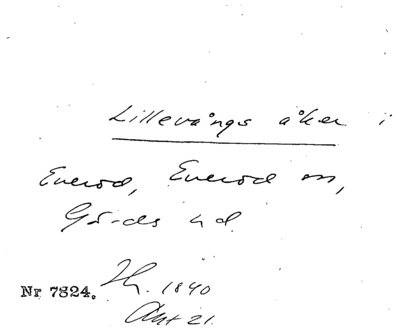 Lillevångs åker i
Everöd, Everöd sn,
Gärds hd.
Nr 7824. Hh. 1840
Akt 21.